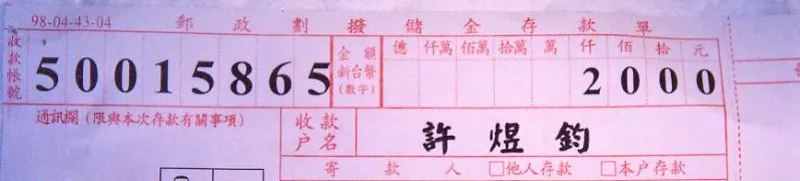 98-04-43-04 郵政劃撥儲金存款單
收款帳號 50015865 金額新台幣(數字) 億 仟萬 佰萬 拾萬 萬 仟 佰 拾 元
2000
通訊欄(限與本次存款有關事項) 收款戶名 許煜鈞
寄款人 □他人存款 □本戶存款